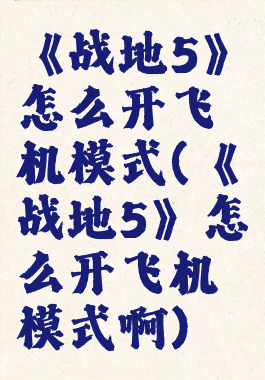 《战地5》
怎么开飞
机模式(《
战地5》怎
么开飞机
模式啊)